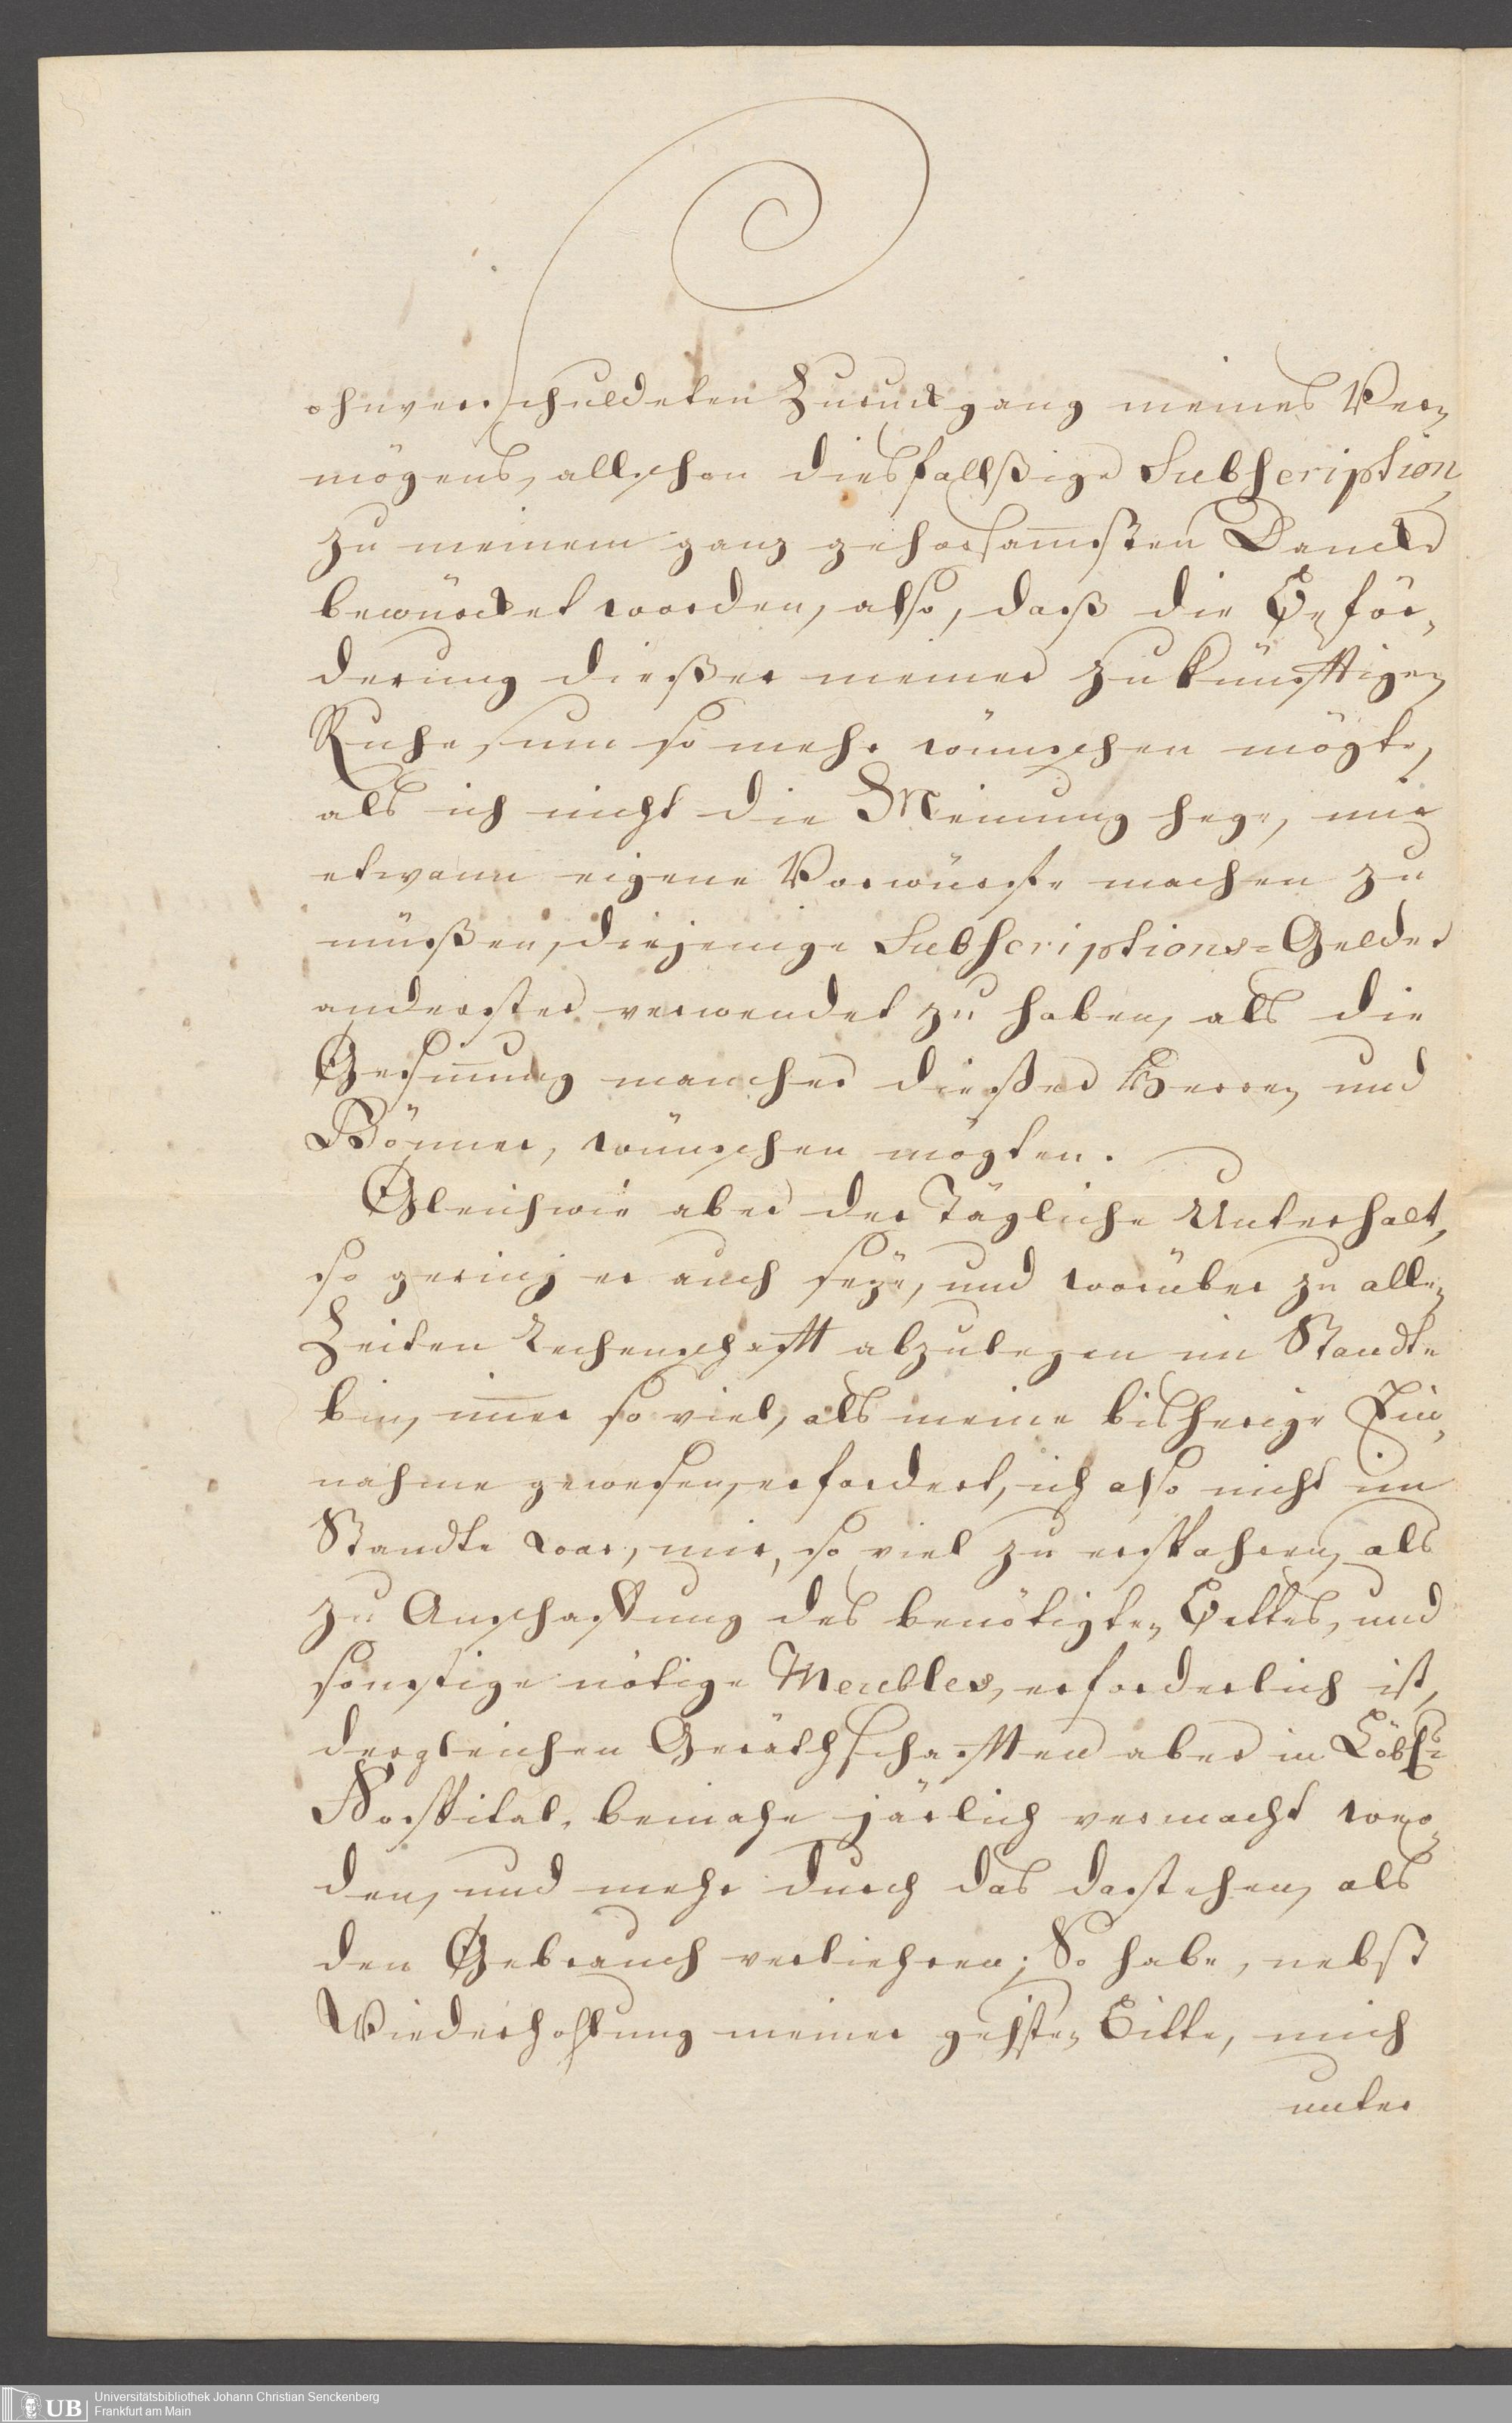 ohnverschuldeten Zuruckgang meines Ver„
mögens, allschon diesfallßige Subscription
zu meinem ganz gehorsam̄sten Dancke
bewürcket worden, also, daß die Beför„
derung dießer meiner zukünfftigen
Ruhe, um so mehr wünschen mögte,
als ich nicht die Meinung hege, mir
etwann eigene Vorwürffe machen zu
müßen, diejenige Subscriptions=Gelder
anderster verwendet zu haben, als die
Gesin̄ung mancher dießer Herren und
Gönner, wünschen mögten.
Gleichwie aber der Tägliche Unterhalt,
so gering er auch seÿe, und worüber zu allen
Zeiten Rechenschafft abzulegen im Standte
bin, im̄er so viel, als meine bisherige Ein„
nahme gewesen, erfordert, ich also nicht im
Standte war, mir, so viel zu erspahren, als
zu Anschaffung des benötigten Bettes, und
sonstige nötige Meubles, erforderlich ist,
dergleichen Geräthschafften aber in Löbl:
Hospital, beinahe järlich vermacht wer„
den, und mehr durch das darstehen, als
den Gebrauch verliehren; So habe, nebst
Wiederhohlung meiner gehsten Bitte, mich
unter
Universitätsbibliothek Johann Christian Senckenberg
Frankfurt am Main
UB